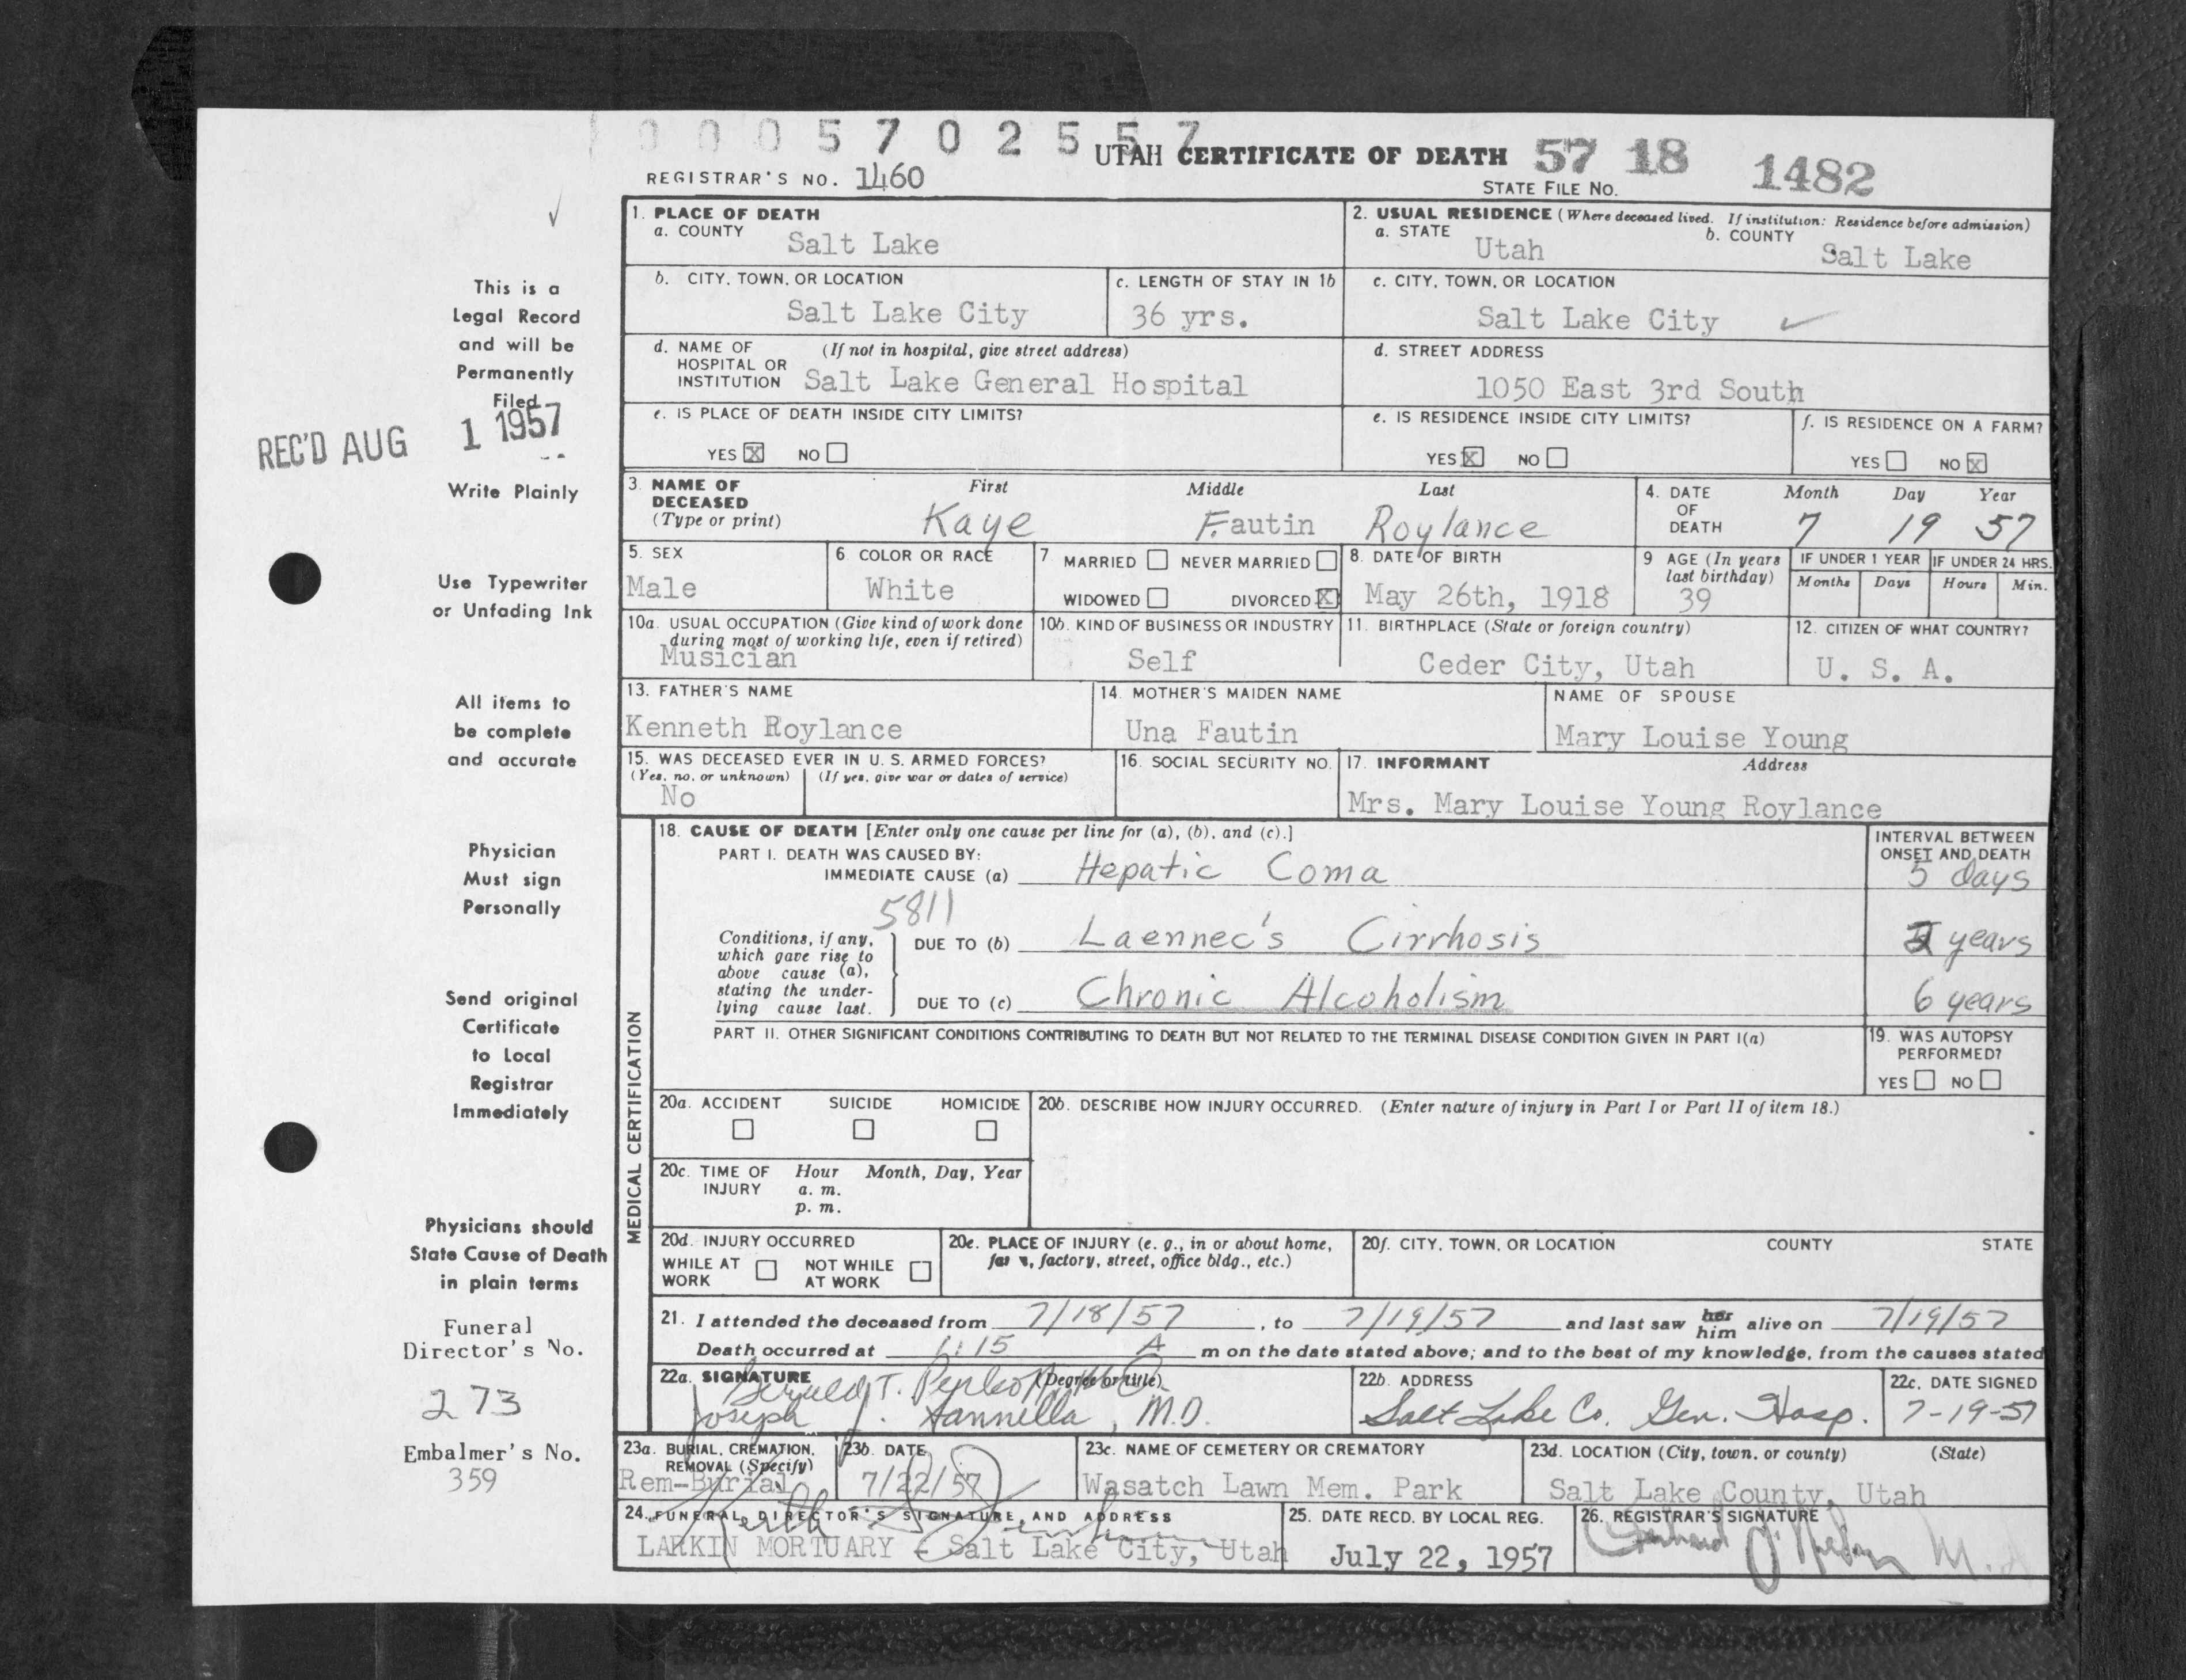 0005702557
UTAH CERTIFICATE OF DEATH 57 18 1482
REGISTRAR'S NO. 1460
STATE FILE NO.
This is a
Legal Record
and will be
Permanently
Filed
REC'D AUG 1 1957
Write Plainly
Use Typewriter
or Unfading Ink
All items to
be complete
and accurate
Physician
Must sign
Personally
Send original
Certificate
to Local
Registrar
Immediately
Physicians should
State Cause of Death
in plain terms
Funeral
Director's No.
273
Embalmer's No.
359
1. PLACE OF DEATH
a. COUNTY
Salt Lake
2. USUAL RESIDENCE (Where deceased lived. If institution: Residence before admission)
a. STATE
Utah
b. COUNTY
Salt Lake
b. CITY, TOWN, OR LOCATION
Salt Lake City
c. LENGTH OF STAY IN 1b
36 yrs.
c. CITY, TOWN, OR LOCATION
Salt Lake City
d. NAME OF (If not in hospital, give street address)
HOSPITAL OR
INSTITUTION Salt Lake General Hospital
d. STREET ADDRESS
1050 East 3rd South
e. IS PLACE OF DEATH INSIDE CITY LIMITS?
YES X NO
e. IS RESIDENCE INSIDE CITY LIMITS?
YES X NO
f. IS RESIDENCE ON A FARM?
YES NO X
3. NAME OF
DECEASED
(Type or print)
First Middle Last
Kaye Fautin Roylance
4. DATE
OF
DEATH
Month Day Year
7 19 57
5. SEX
Male
6. COLOR OR RACE
White
7. MARRIED NEVER MARRIED
WIDOWED DIVORCED X
8. DATE OF BIRTH
May 26th, 1918
9 AGE (In years
last birthday)
39
IF UNDER 1 YEAR
Months Days
IF UNDER 24 HRS.
Hours Min.
10a. USUAL OCCUPATION (Give kind of work done
during most of working life, even if retired)
Musician
10b. KIND OF BUSINESS OR INDUSTRY
Self
11. BIRTHPLACE (State or foreign country)
Ceder City, Utah
12. CITIZEN OF WHAT COUNTRY?
U. S. A.
13. FATHER'S NAME
Kenneth Roylance
14. MOTHER'S MAIDEN NAME
Una Fautin
NAME OF SPOUSE
Mary Louise Young
15. WAS DECEASED EVER IN U. S. ARMED FORCES?
(Yes, no, or unknown) (If yes, give war or dates of service)
No
16. SOCIAL SECURITY NO.
17. INFORMANT Address
Mrs. Mary Louise Young Roylance
MEDICAL CERTIFICATION
18. CAUSE OF DEATH [Enter only one cause per line for (a), (b), and (c).]
PART I. DEATH WAS CAUSED BY:
IMMEDIATE CAUSE (a) Hepatic Coma
INTERVAL BETWEEN
ONSET AND DEATH
5 days
5811
Conditions, if any,
which gave rise to
above cause (a),
stating the under-
lying cause last.
DUE TO (b) Laennec's Cirrhosis
years
DUE TO (c) Chronic Alcoholism
6 years
PART II. OTHER SIGNIFICANT CONDITIONS CONTRIBUTING TO DEATH BUT NOT RELATED TO THE TERMINAL DISEASE CONDITION GIVEN IN PART I(a)
19. WAS AUTOPSY
PERFORMED?
YES NO
20a. ACCIDENT SUICIDE HOMICIDE
20b. DESCRIBE HOW INJURY OCCURRED. (Enter nature of injury in Part I or Part II of item 18.)
20c. TIME OF Hour Month, Day, Year
INJURY a. m.
p. m.
20d. INJURY OCCURRED
WHILE AT NOT WHILE
WORK AT WORK
20e. PLACE OF INJURY (e. g., in or about home,
factory, street, office bldg., etc.)
20f. CITY, TOWN, OR LOCATION COUNTY STATE
21. I attended the deceased from 7/18/57, to 7/19/57 and last saw her him alive on 7/19/57
Death occurred at 1:15 A m on the date stated above; and to the best of my knowledge, from the causes stated
22a. SIGNATURE (Degree or title)
T.
Joseph J. Iannella, M.D.
22b. ADDRESS
Salt Lake Co. Gen. Hosp.
22c. DATE SIGNED
7-19-57
23a. BURIAL, CREMATION,
REMOVAL (Specify)
Rem-Burial
23b. DATE
7/22/57
23c. NAME OF CEMETERY OR CREMATORY
Wasatch Lawn Mem. Park
23d. LOCATION (City, town, or county) (State)
Salt Lake County, Utah
24. FUNERAL DIRECTOR'S SIGNATURE, AND ADDRESS
Keith
LARKIN MORTUARY - Salt Lake City, Utah
25. DATE RECD. BY LOCAL REG.
July 22, 1957
26. REGISTRAR'S SIGNATURE